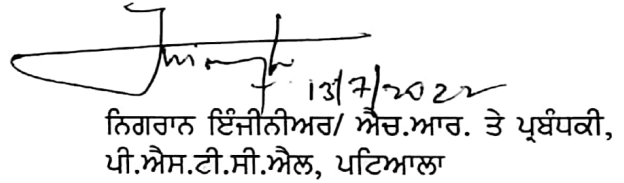 13/7/2022
ਨਿਗਰਾਨ ਇੰਜੀਨੀਅਰ/ ਐਚ.ਆਰ. ਤੇ ਪ੍ਰਬੰਧਕੀ,
ਪੀ.ਐਸ.ਟੀ.ਸੀ.ਐਲ, ਪਟਿਆਲਾ